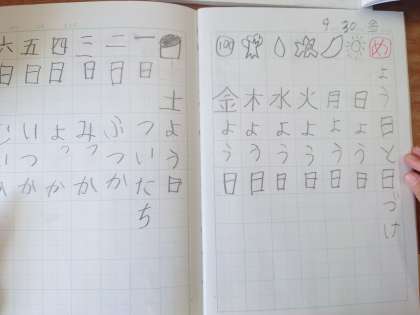 9.30 金
めようびと日づけ
日よう日
月よう日
火よう日
水よう日
木よう日
金よう日
土よう日
一日 ついたち
二日 ふつか
三日 みっか
四日 よっか
五日 いつか
六日